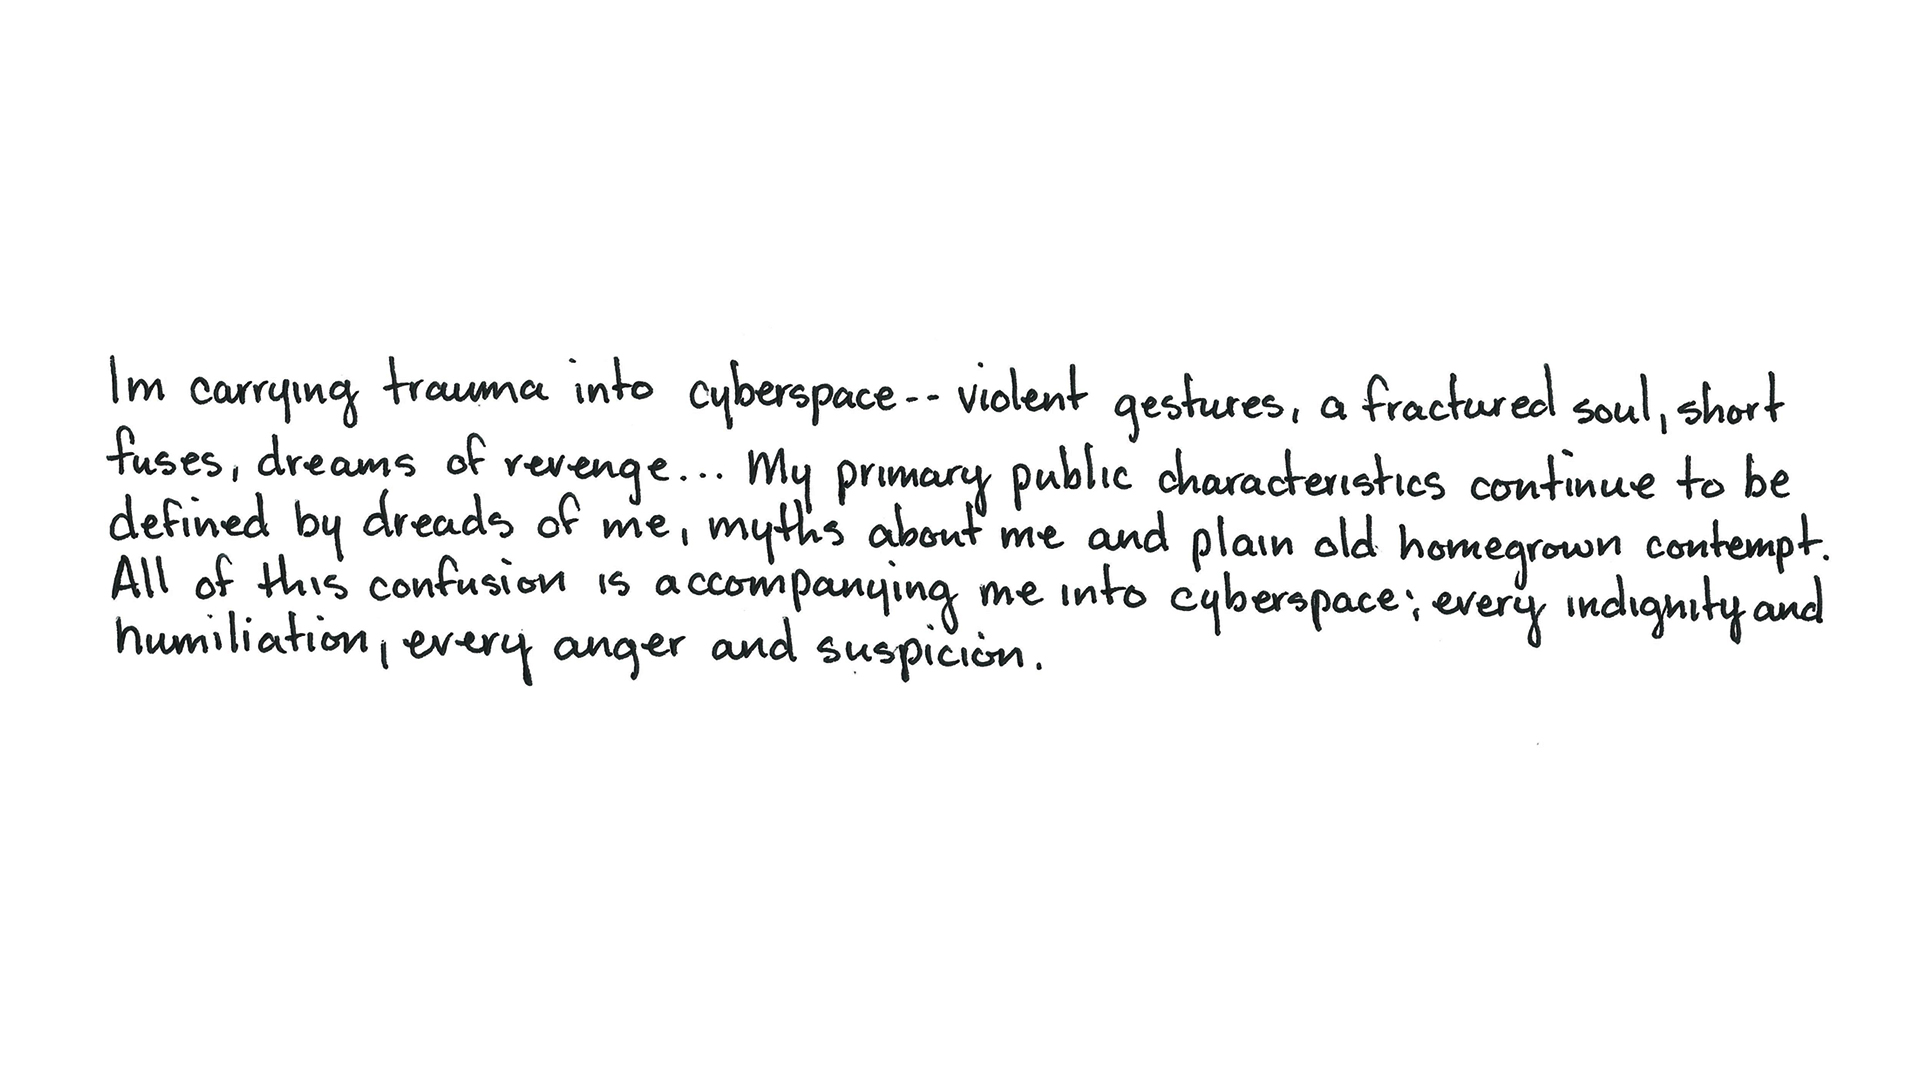 Im carrying trauma into cyberspace -- violent gestures, a fractured soul, short
fuses, dreams of revenge... My primary public characteristics continue to be
defined by dreads of me, myths about me and plain old homegrown contempt.
All of this confusion is accompanying me into cyberspace; every indignity and
humiliation, every anger and suspicion.